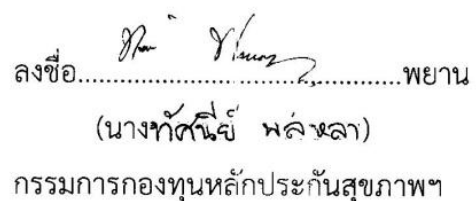 ลงชื่อ....................................................พยาน
(นางทัศนีย์ พลหลา)
กรรมการกองทุนหลักประกันสุขภาพฯ